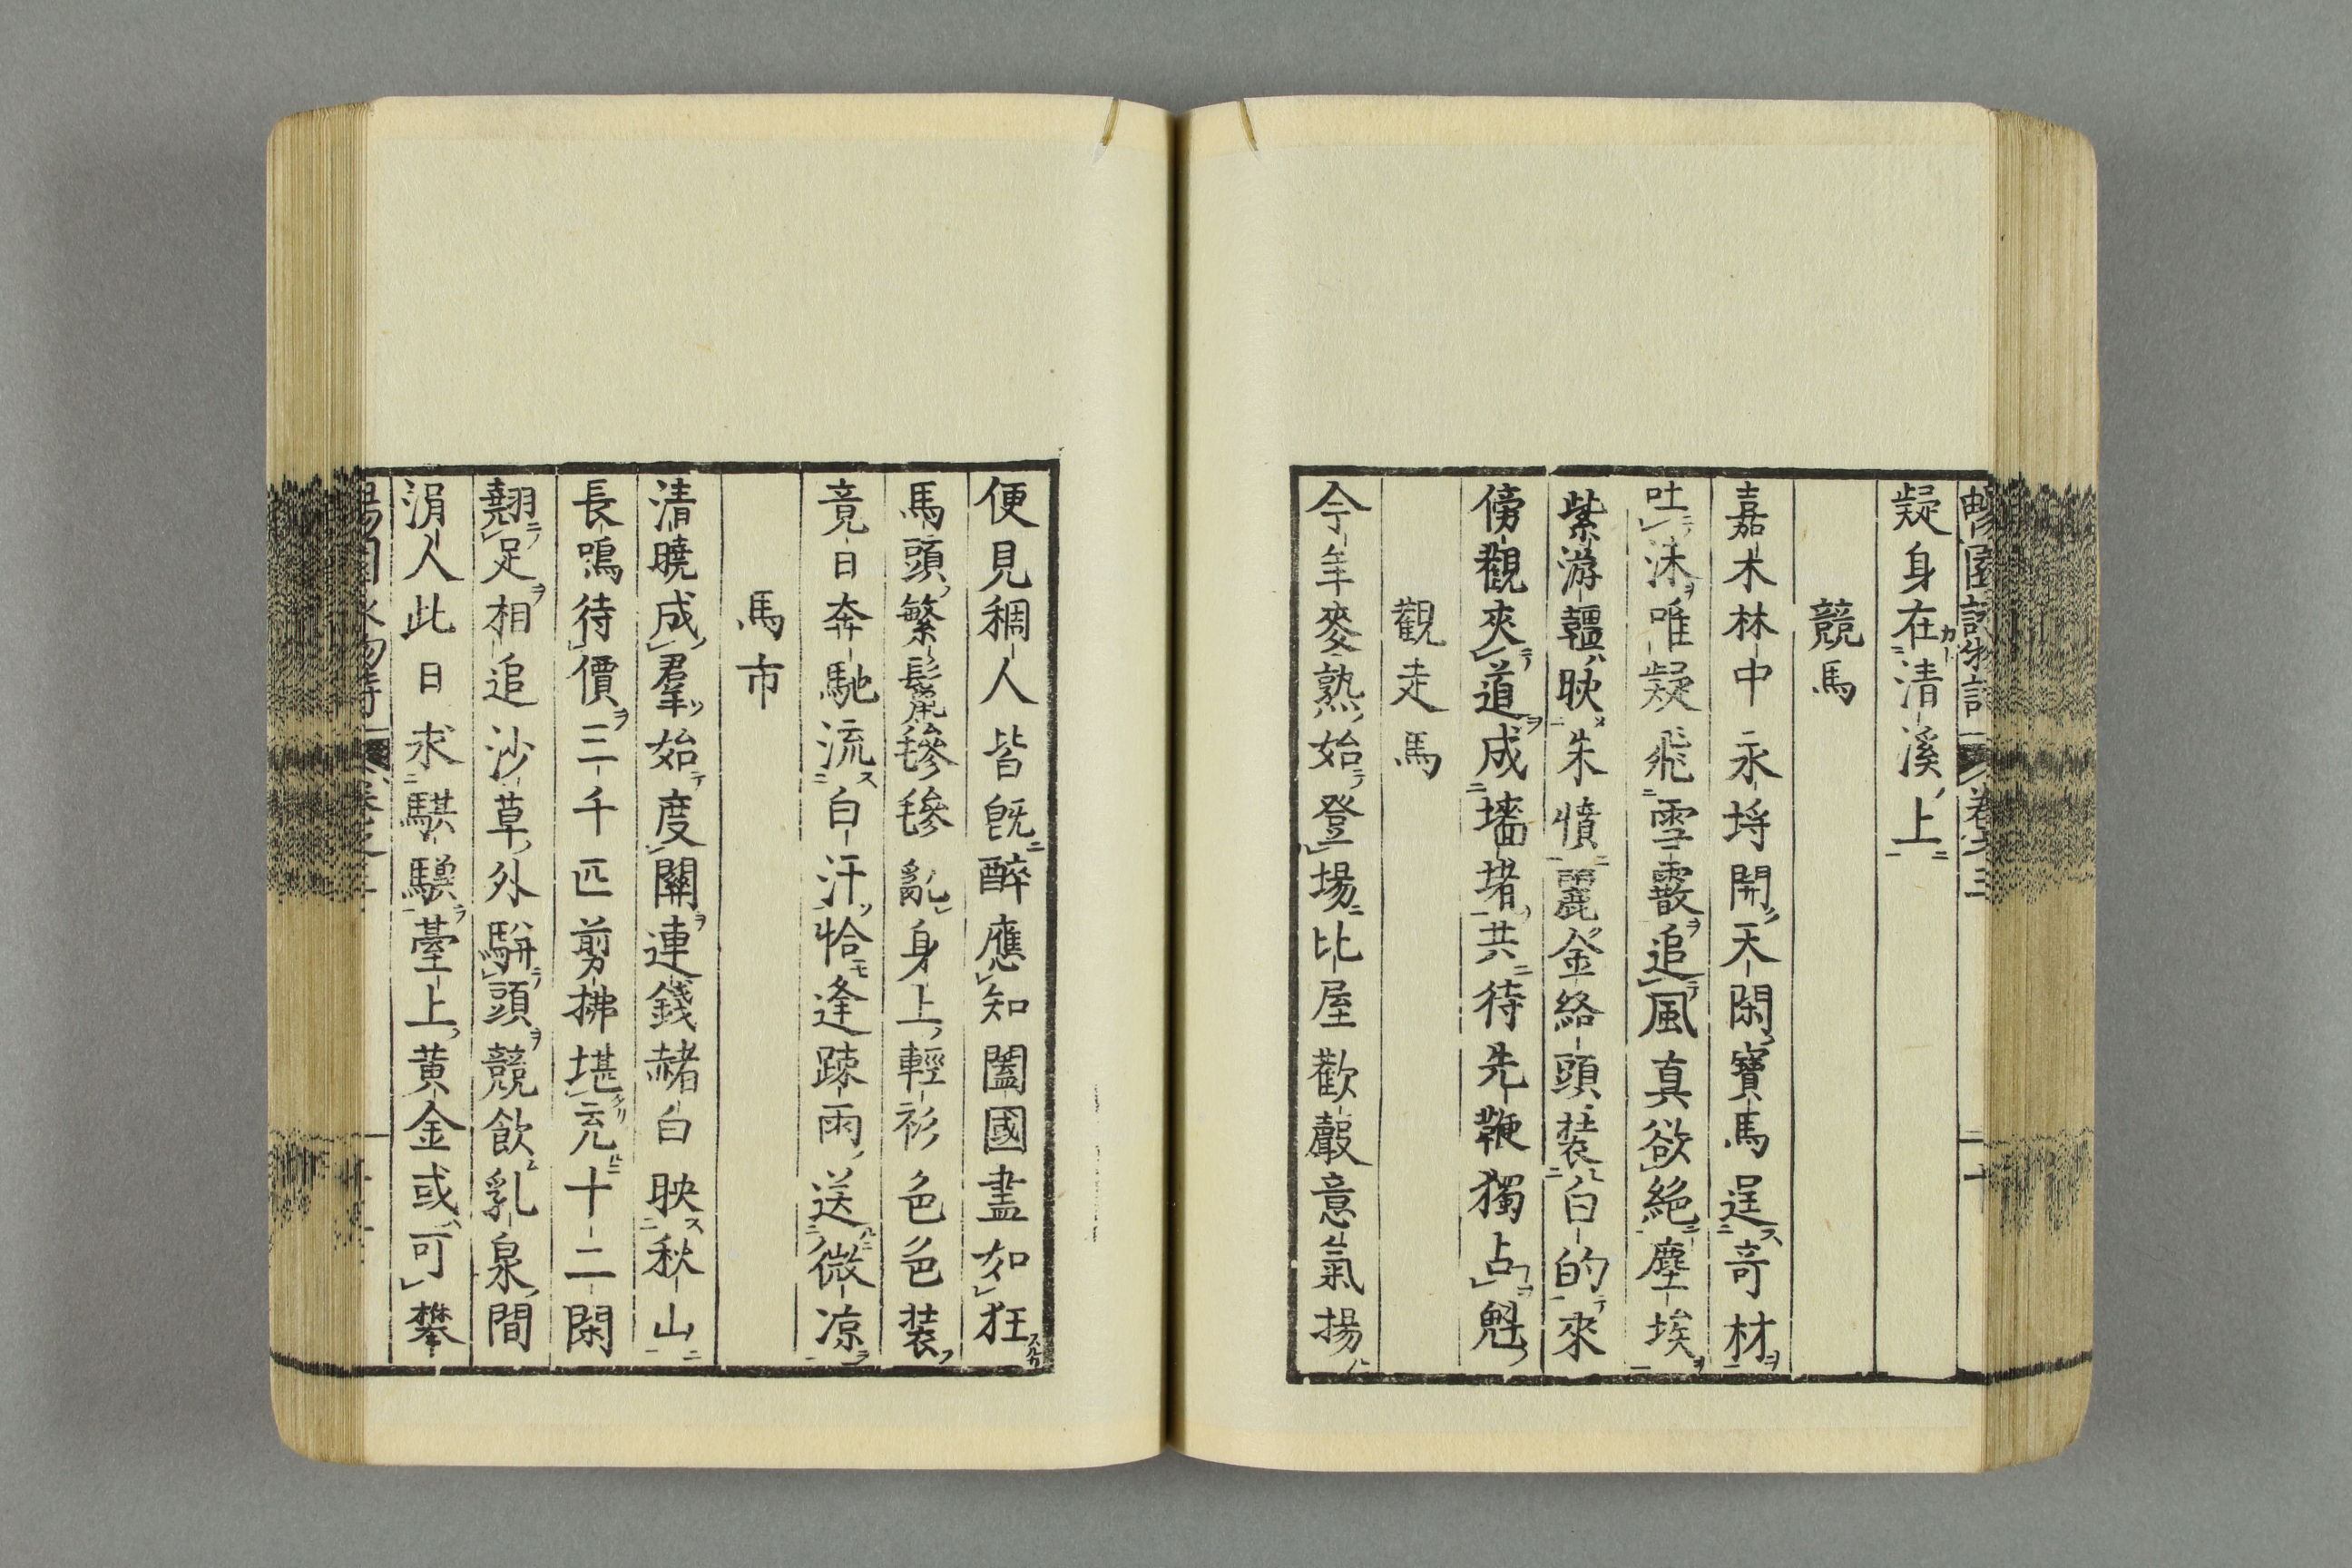 疑身在清溪上
競馬
嘉木林中永埒開天閑寶馬逞奇材
吐沫唯疑飛雪霰追風真欲絕塵埃
紫游韁映朱憤麗金絡頭裝白的來
傍觀夾道成墻堵共待先鞭獨占魁
觀走馬
今年麥熟始登場比屋歡聲意氣揚
便見稠人皆既醉應知闔國盡如狂
馬頭繁鬣毿毿亂身上輕衫色色装
竟日奔馳流白汗恰逢疎雨送微凉
馬市
清曉成羣始度關連錢赭白映秋山
長鳴待價三千匹剪拂堪充十二閑
翹足相追沙草外駢頭競飲乳泉間
涓人此日求騏驥臺上黃金或可攀